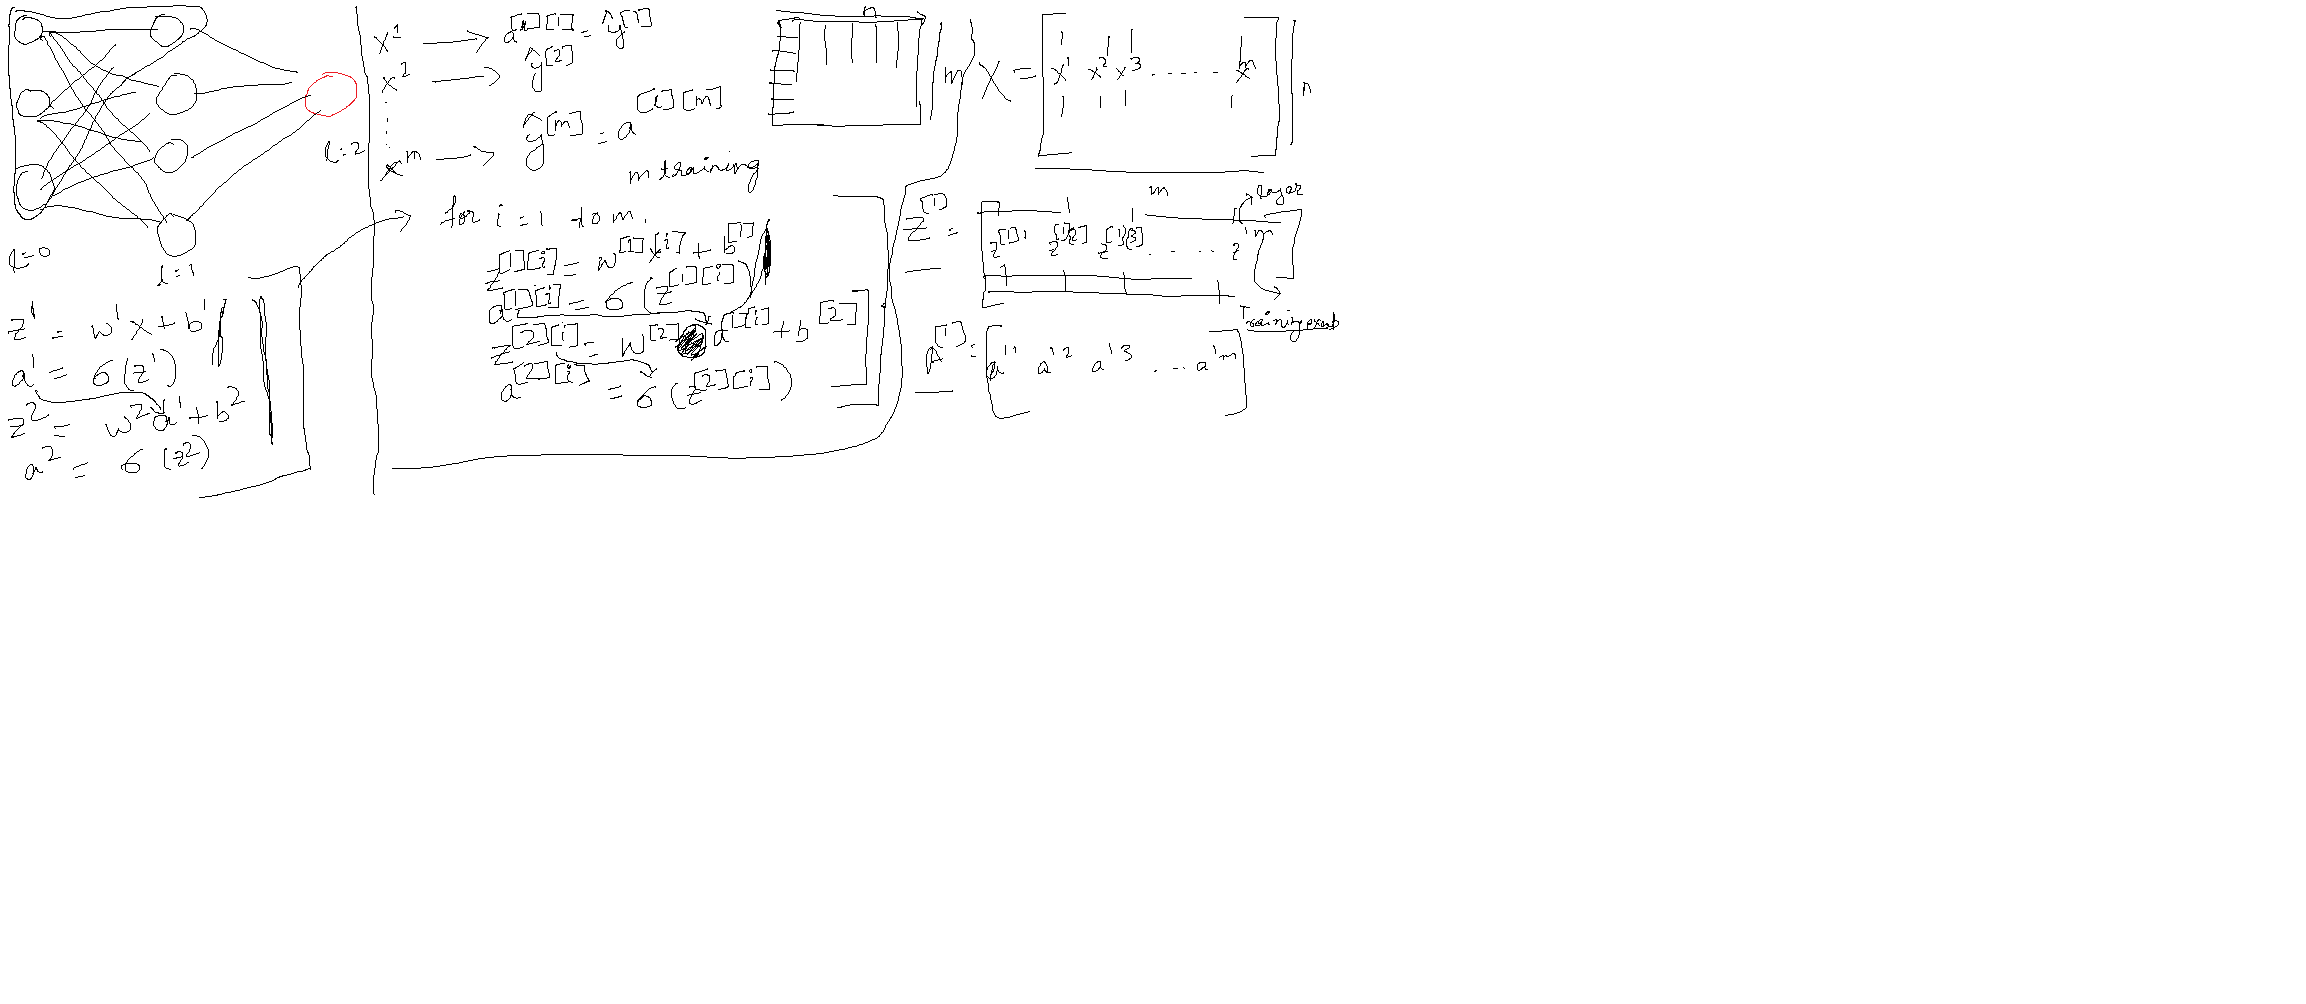 l=0
l=1
l=2
z¹ = w¹x + b¹
a¹ = σ(z¹)
z² = w²a¹ + b²
a² = σ(z²)
x¹ → a^[2][1] = ŷ^[1]
x² → ŷ^[2]
x^m → ŷ^[m] = a^[2][m]
m training
for i = 1 to m.
z^[1][i] = w^[1]x^[i] + b^[1]
a^[1][i] = σ(z^[1][i])
z^[2][i] = w^[2] a^[1][i] + b^[2]
a^[2][i] = σ(z^[2][i])
n
m
X = [x¹ x² x³ ...... x^m]
n
m
layer
Z^[1] = [z^[1]1 z^[1][2] z^[1][3] ..... z^1m]
Training examp
A^[1] = [a^11 a^12 a^13 ... a^1m]